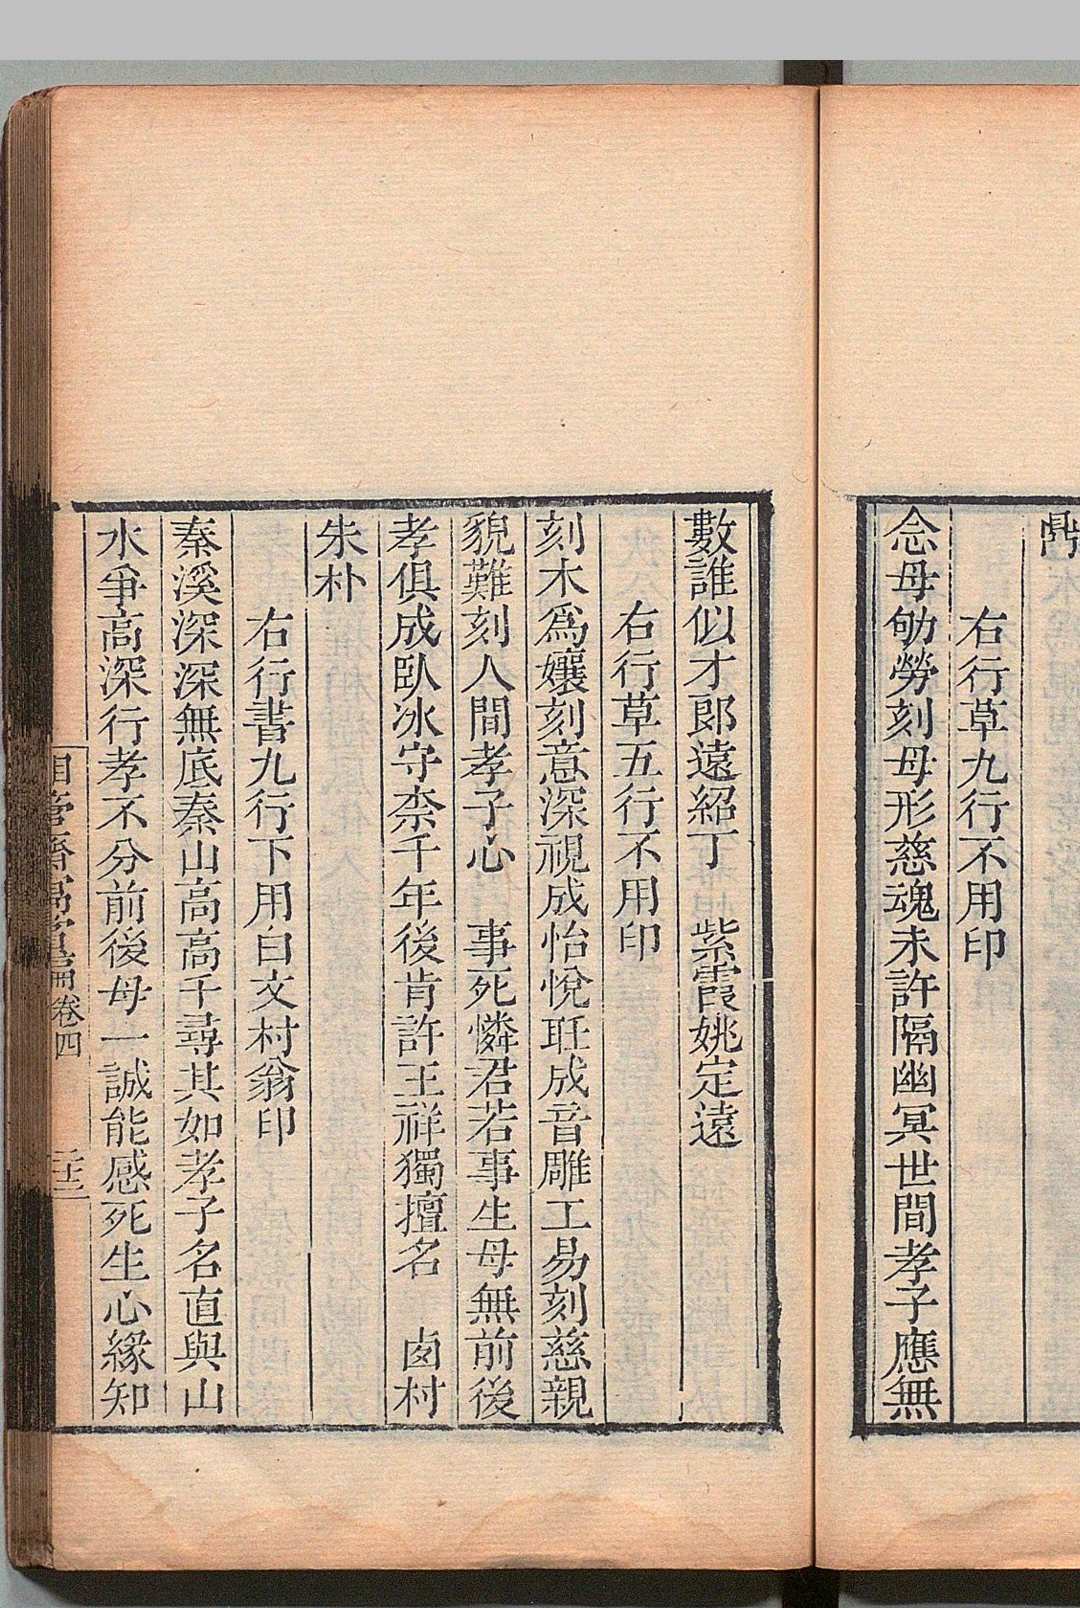 右行草九行不用印
念母劬勞刻母形慈魂未許隔幽冥世間孝子應無
數誰似才郎遠紹丁　紫霞姚定遠
右行草五行不用印
刻木爲孃刻意深視成怡悅成音雕工易刻慈親
貌難刻人間孝子心　事死憐君若事生母無前後
孝俱成臥冰守柰千年後肯許王祥獨擅名　卥村
朱朴
右行書九行下用白文村翁印
秦溪深深無底秦山高高千尋其如孝子名直與山
水爭高深行孝不分前後母一誠能感死生心緣知
相管齋寓賞編卷四